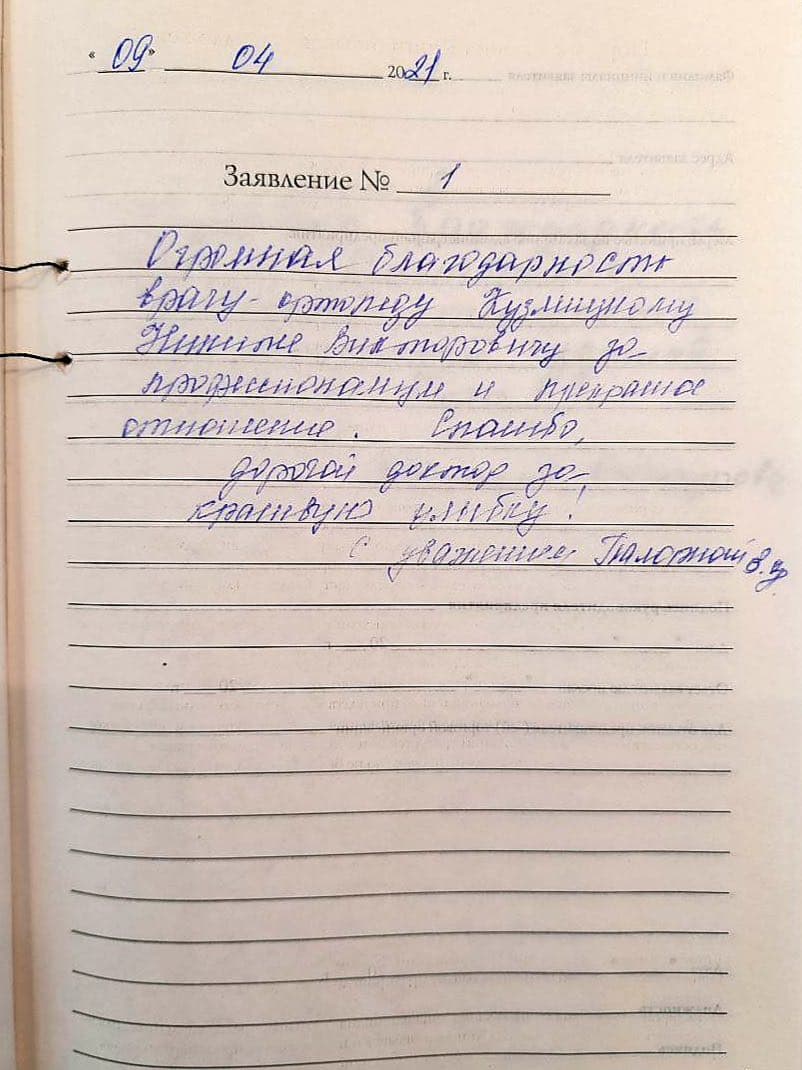 « 09 » 04 2021 г.
Заявление № 1
Огромная благодарность
врачу-ортопеду Кузмицкому
Никите Викторовичу за
профессионализм и прекрасное
отношение. Спасибо,
дорогой доктор за
красивую улыбку!
С уважением